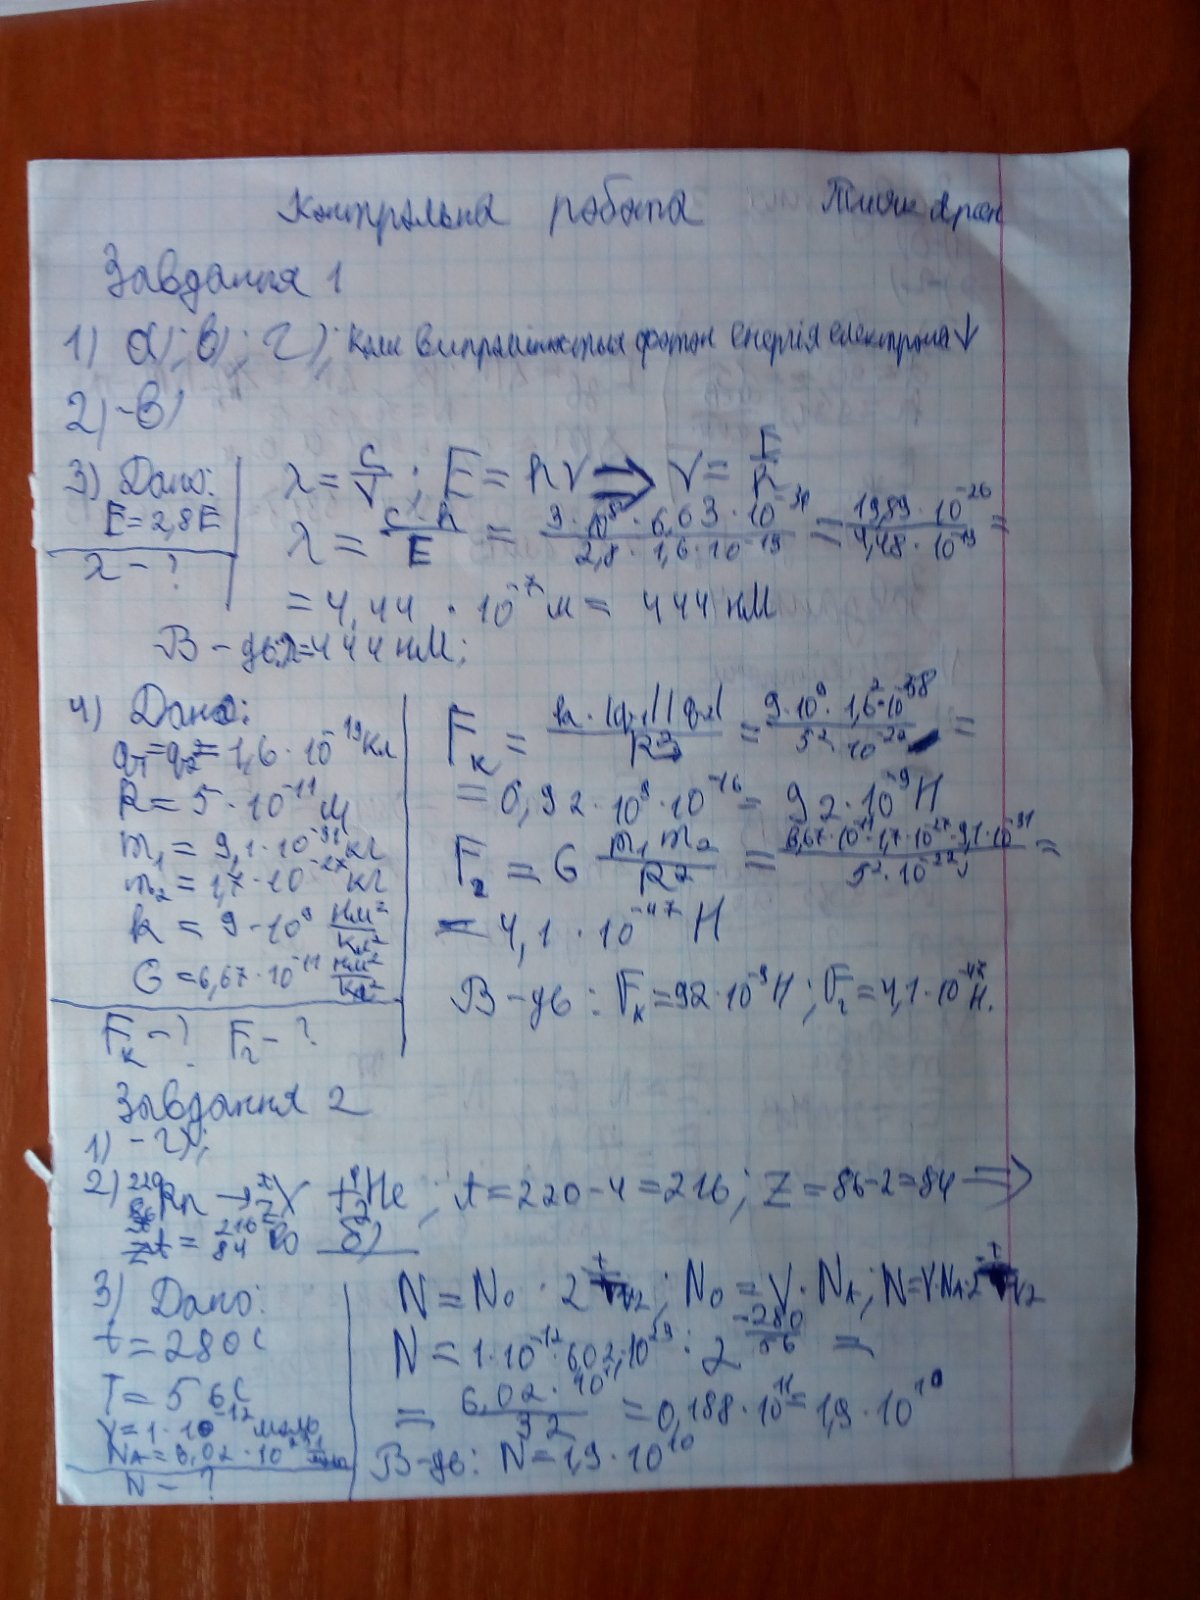 Контрольна робота
Завдання 1
1) а); в); г); Коли випромінюється фотон енергія електрона ↓
2) - в)
3) Дано:
E = 2,8 E
λ - ?
λ = c/ν ; E = hν ⇒ ν = E/h
λ = c·h/E = 3·10⁸·6,63·10⁻³⁴/2,8·1,6·10⁻¹⁹ = 19,89·10⁻²⁶/4,48·10⁻¹⁹ =
= 4,44 · 10⁻⁷ м = 444 нм
В-дь: λ = 444 нм;
4) Дано:
q₁ = q₂ = 1,6 · 10⁻¹⁹ Кл
R = 5 · 10⁻¹¹ м
m₁ = 9,1 · 10⁻³¹ кг
m₂ = 1,7 · 10⁻²⁷ кг
k = 9 · 10⁹ Нм²/Кл²
G = 6,67 · 10⁻¹¹ Нм²/кг²
Fк - ? Fг - ?
Fк = k·|q₁||q₂|/R² = 9·10⁹·1,6²·10⁻³⁸/5²·10⁻²² =
= 0,92 · 10⁹ · 10⁻¹⁶ = 92 · 10⁻⁹ Н
Fг = G m₁m₂/R² = 6,67·10⁻¹¹·1,7·10⁻²⁷·9,1·10⁻³¹/5²·10⁻²² =
= 4,1 · 10⁻⁴⁷ Н
В-дь: Fк = 92·10⁻⁹ Н; Fг = 4,1·10⁻⁴⁷ Н.
Завдання 2
1) - г);
2) ²²⁰₈₆Rn → ᴬzX + ⁴₂He ; A = 220 - 4 = 216 ; Z = 86 - 2 = 84 ⇒
= ²¹⁶₈₄Po б)
3) Дано:
t = 280 с
T = 56 с
ν = 1·10⁻¹² моль
N_A = 6,02 · 10²³ 1/моль
N - ?
N = N₀ · 2^(-t/T½) ; N₀ = ν · N_A ; N = ν·N_A·2^(-t/T½)
N = 1·10⁻¹²·6,02·10²³ · 2^(-280/56) =
= 6,02 · 10¹¹/32 = 0,188 · 10¹¹ = 1,9 · 10¹⁰
В-дь: N = 1,9 · 10¹⁰